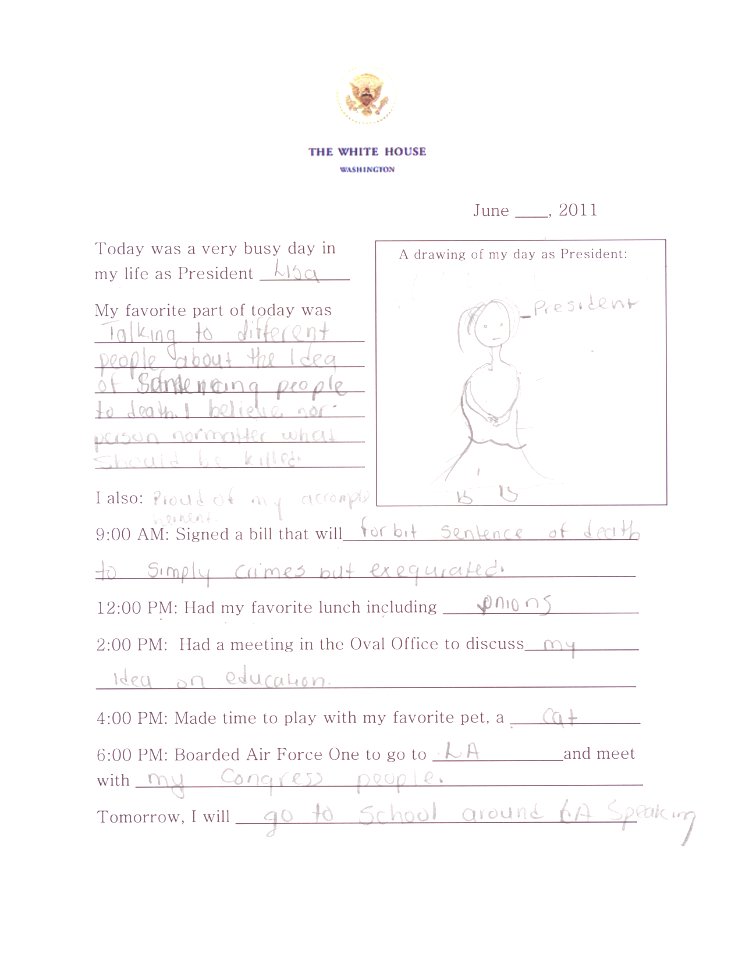 THE WHITE HOUSE
WASHINGTON
June ___, 2011
Today was a very busy day in
my life as President Lisa
A drawing of my day as President:
President
My favorite part of today was
Talking to different
people about the Idea
of Sentencing people
to death. I believe nor
person normatter what
should be killed.
I also: Proud of my accomple
hement.
9:00 AM: Signed a bill that will forbit sentence of death
to simply crimes but exequrated.
12:00 PM: Had my favorite lunch including onions
2:00 PM: Had a meeting in the Oval Office to discuss my
Idea on education.
4:00 PM: Made time to play with my favorite pet, a cat
6:00 PM: Boarded Air Force One to go to LA and meet
with my Congress people.
Tomorrow, I will go to School around LA Speaking